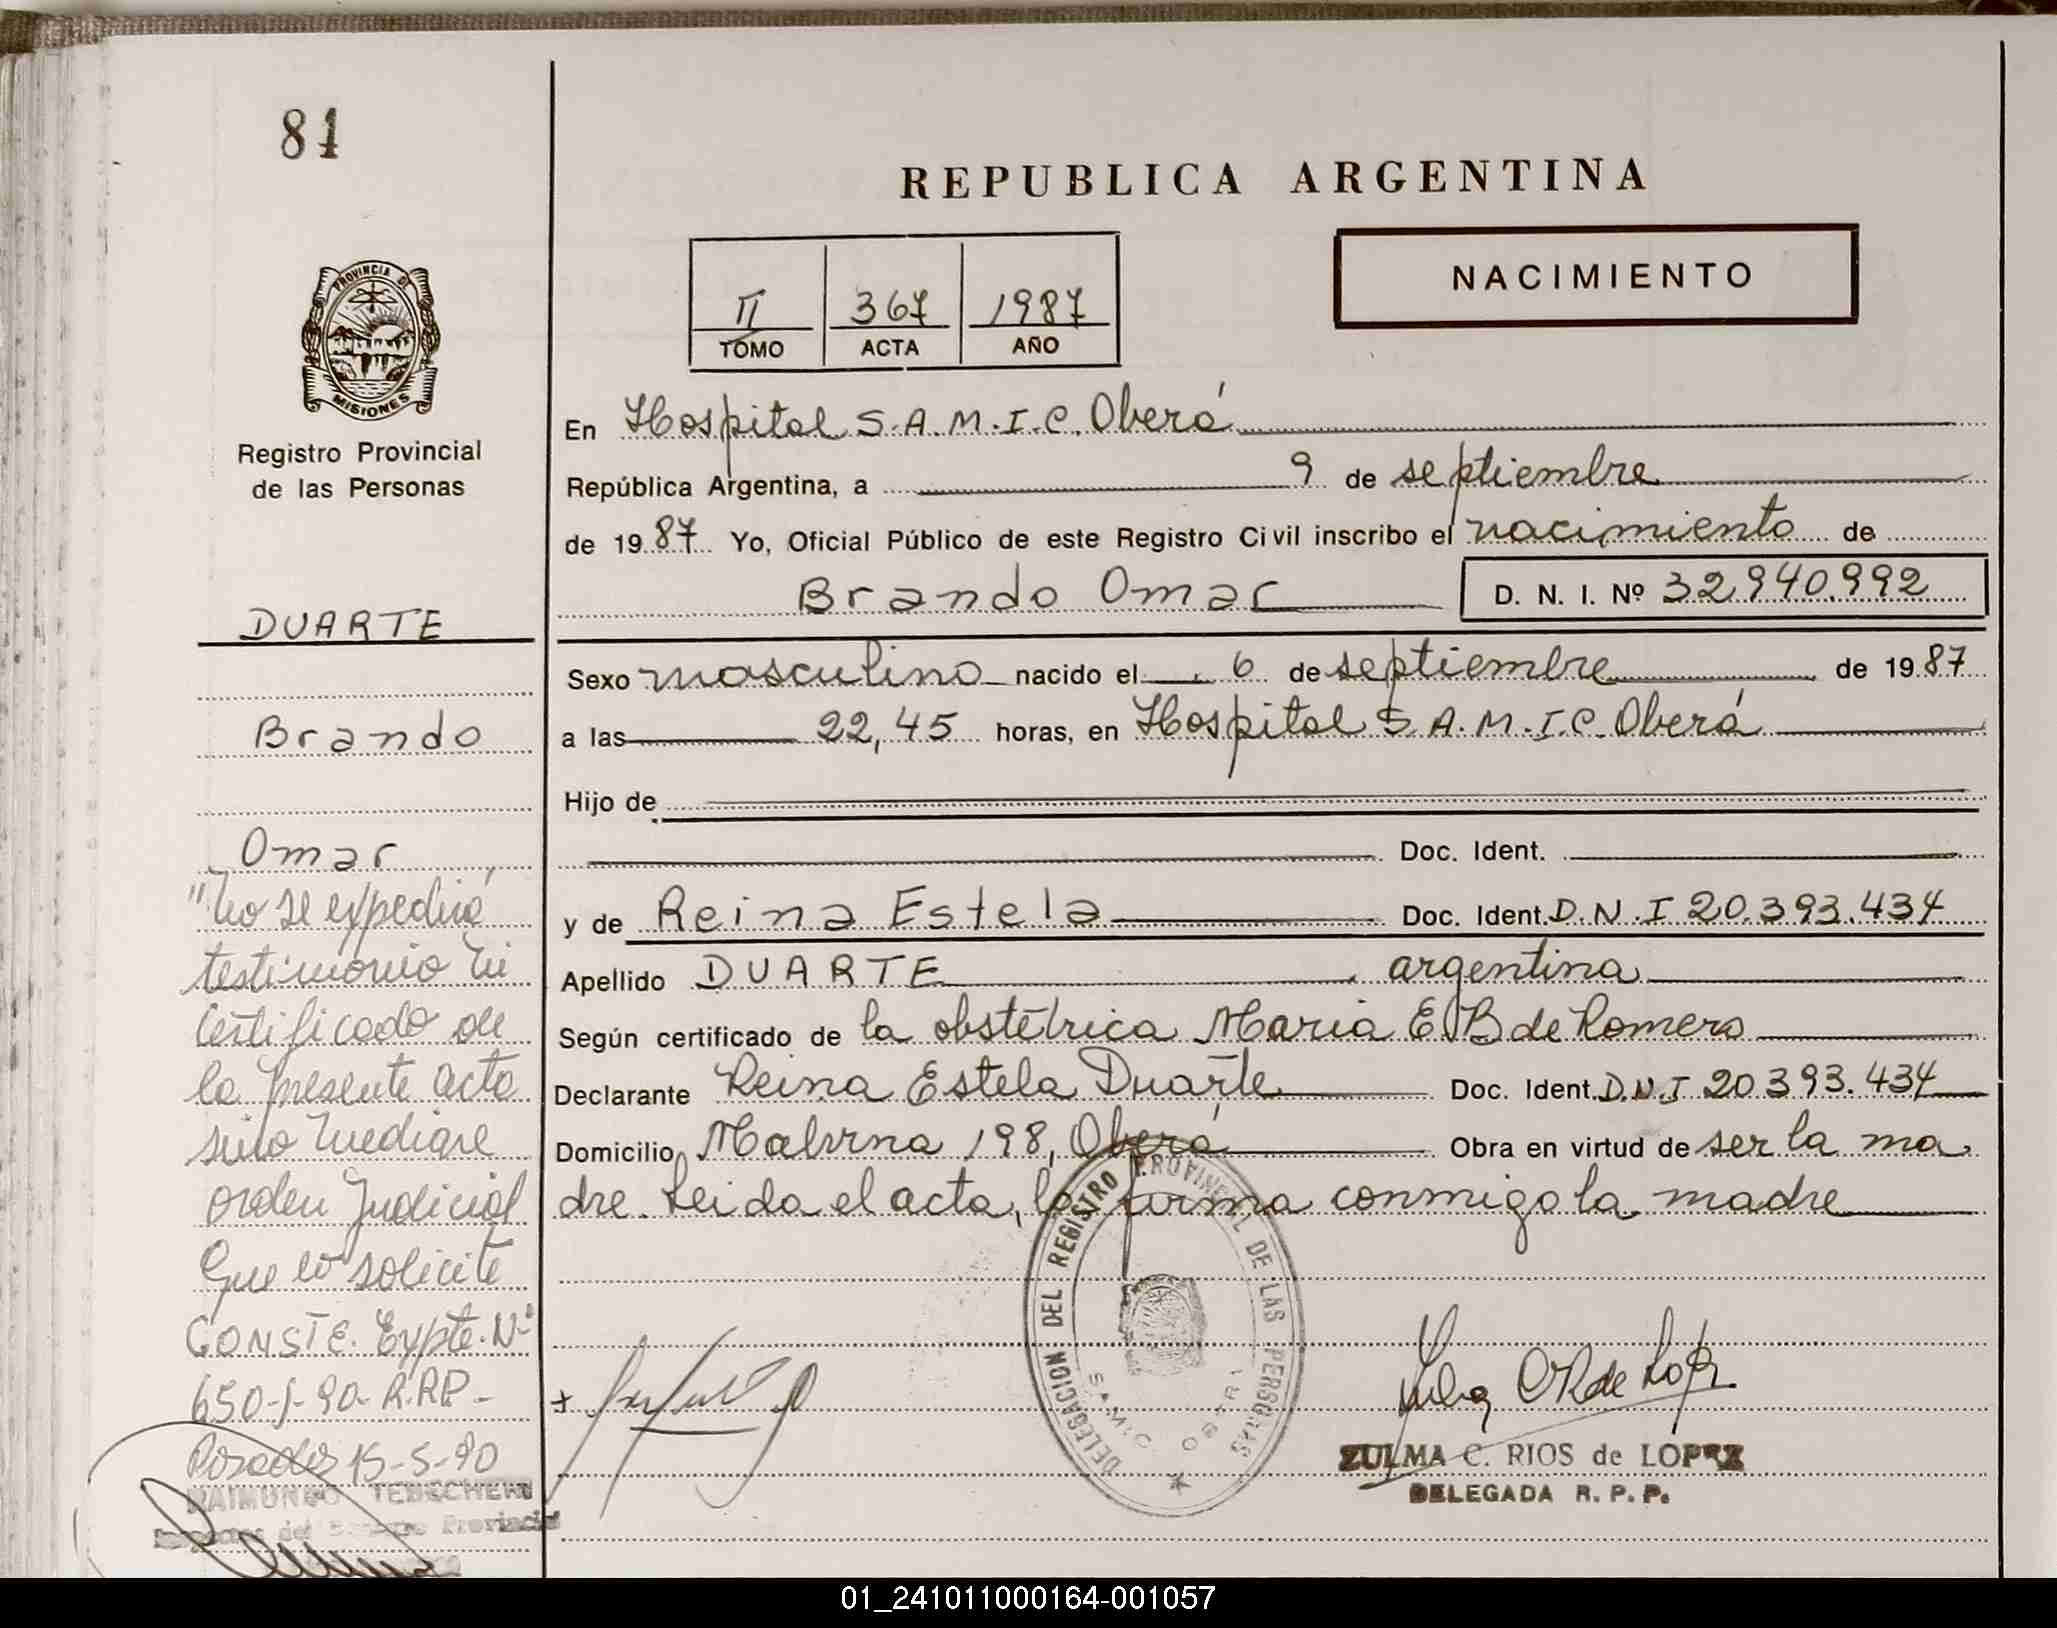 84
REPUBLICA ARGENTINA
NACIMIENTO
II 367 1987
TOMO ACTA AÑO
PROVINCIA DE
MISIONES
Registro Provincial
de las Personas
En Hospital S.A.M.I.C. Oberá
República Argentina, a 9 de septiembre
de 1987 Yo, Oficial Público de este Registro Civil inscribo el nacimiento de
Brando Omar D. N. I. Nº 32.940.992
DUARTE
Sexo masculino nacido el 6 de septiembre de 1987
Brando
a las 22,45 horas, en Hospital S.A.M.I.C. Oberá
Hijo de
Omar
Doc. Ident.
y de Reina Estela Doc. Ident. D.N.I 20.393.434
Apellido DUARTE argentina
Según certificado de la obstétrica Maria E. B de Romero
Declarante Reina Estela Duarte Doc. Ident. D.N.I 20393.434
Domicilio Malvina 198, Oberá Obra en virtud de ser la ma
dre. Leida el acta, la firma conmigo la madre
"No se expedirá
testimonio ni
certificado de
la presente acta
sino mediare
orden Judicial
que lo solicite
CONSTE. Expte. Nº
650-J-90-R.RP-
Posadas 15-5-90
DELEGACION DEL REGISTRO PROVINCIAL DE LAS PERSONAS
SAMIC
ZULMA C. RIOS de LOPEZ
DELEGADA R. P. P.
01_241011000164-001057